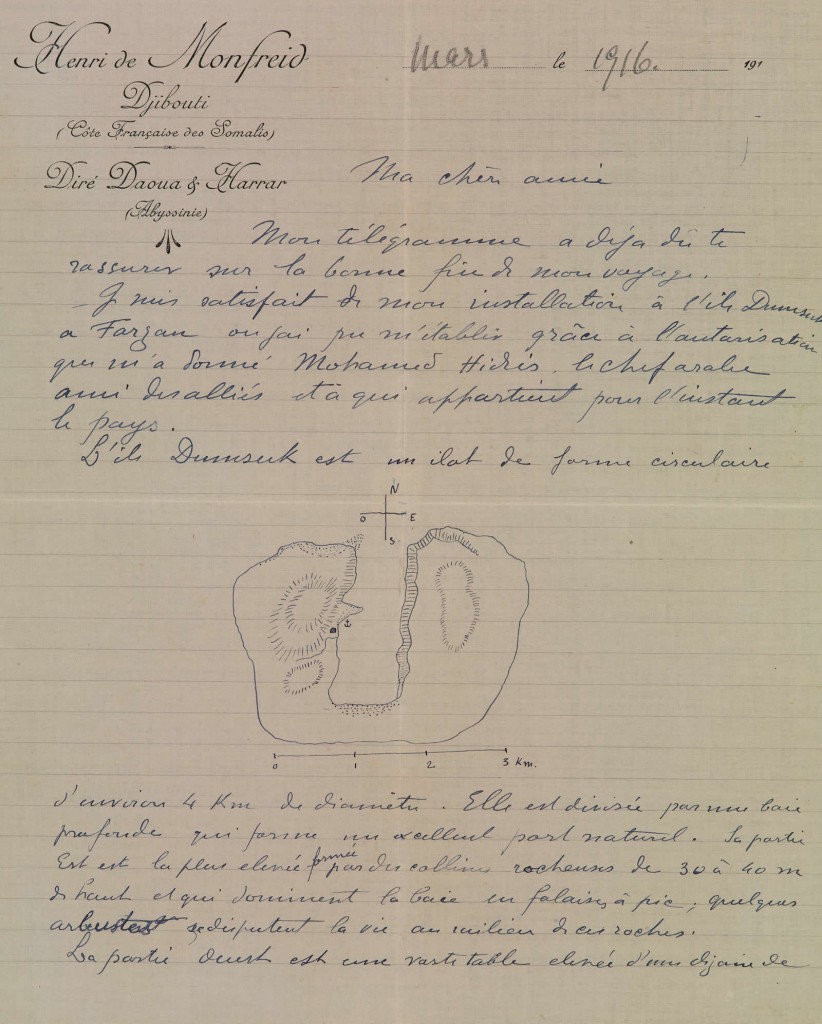 Henri de Monfreid
Djibouti
(Côte Française des Somalis)
Diré Daoua & Harrar
(Abyssinie)
Mars le 1916. 191
Ma chère amie
Mon télégramme a déja dû te
rassurer sur la bonne fin de mon voyage.
- Je suis satisfait de mon installation à l'ile Dumsuk
a Farzan ou j'ai pu m'établir grâce à l'autorisation
que m'a donné Mohamed Hidris, le chef arabe
ami des alliés et à qui appartient pour l'instant
le pays.
L'ile Dumsuk est un ilot de forme circulaire
N
O E
S
0 1 2 3 Km.
d'environ 4 Km de diamètre. Elle est divisée par une baie
profonde qui forme un excellent port naturel. Sa partie
Est est la plus elevée formée par des collines rocheuses de 30 à 40 m
de haut et qui dominent la baie en falaises à pic; quelques
arbustes se disputent la vie au milieu de ces roches.
La partie Ouest est une vaste table elevée d'une dizaine de